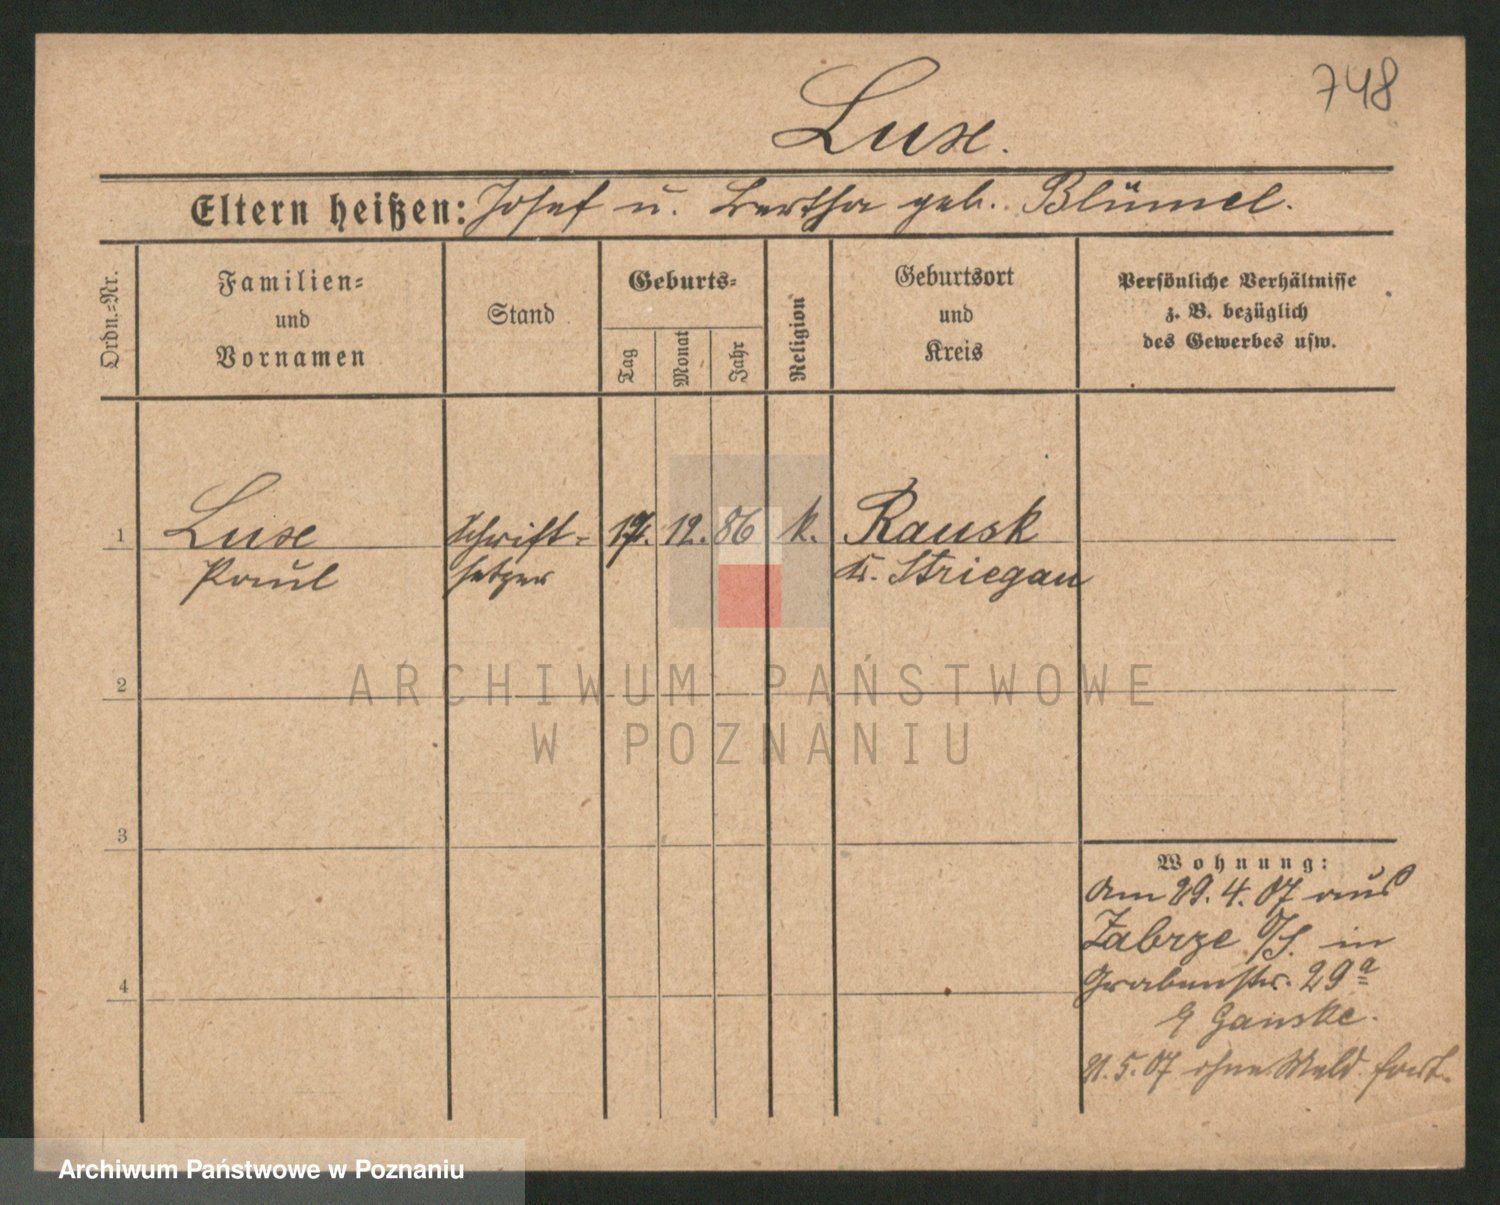 748
Luxe.
Eltern heißen: Josef u. Bertha geb. Blümel.
Ordn.-Nr.
Familien-
und
Vornamen
Stand
Geburts-
Tag
Monat
Jahr
Religion
Geburtsort
und
Kreis
Persönliche Verhältnisse
z. B. bezüglich
des Gewerbes usw.
1 Luxe Schrift- 17. 12. 86 k. Rausk
Paul setzer Kr. Striegau
2
3
4
Wohnung:
Am 29. 4. 07 aus
Zabrze O/S. in
Grabenstr. 29a
Ganske.
21. 5. 07 ohne Meld. fort.
ARCHIWUM PAŃSTWOWE
W POZNANIU
Archiwum Państwowe w Poznaniu